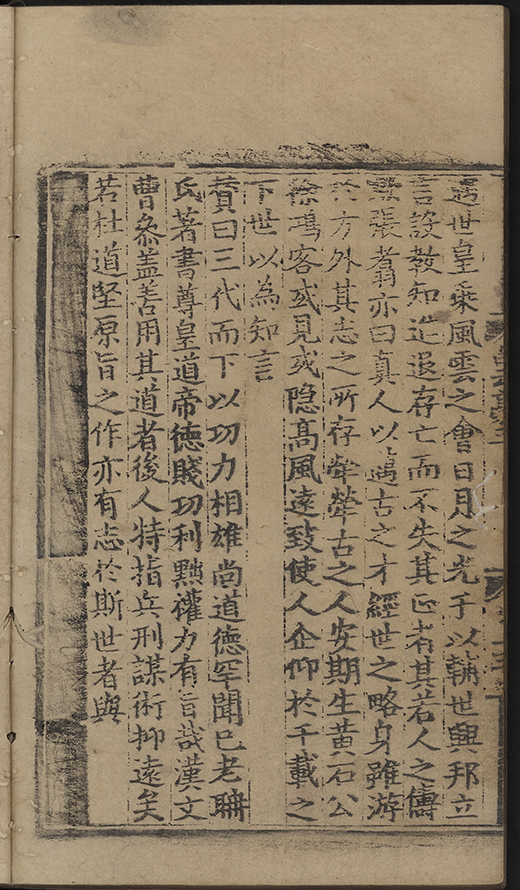 遇世皇乘風雲之會日月之光于以輔世興邦立
言設教知進退存亡而不失其正者其若人之儔
歟張者翁亦曰真人以邁古之才經世之略身雖游
於方外其志之所存犖犖古之人安期生黄石公
徐鴻客或見或隐髙風逺致使人企仰於千載之
下世以為知言
賛曰三代而下以功力相雄尚道德罕聞已老聃
氏著書尊皇道帝德賤功利黜權力有旨哉漢文
曹叅盖善用其道者後人特指兵刑謀術抑逺矣
若杜道堅原旨之作亦有志於斯世者與